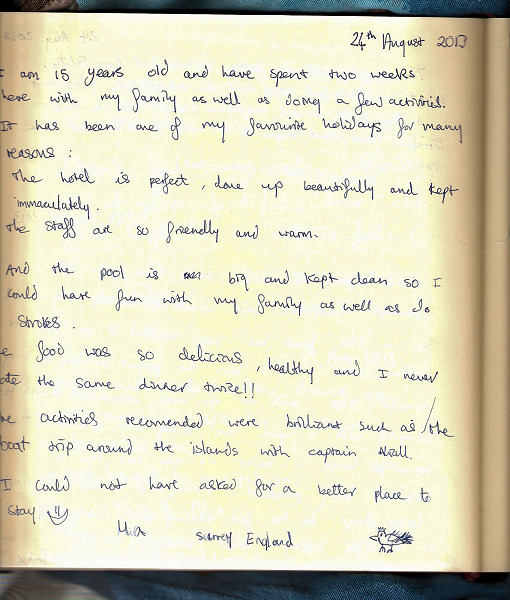 24th August 2013
I am 15 years old and have spent two weeks
here with my family as well as doing a few activities.
It has been one of my favourite holidays for many
reasons :
The hotel is perfect, done up beautifully and kept
immaculately.
The staff are so friendly and warm.
And the pool is big and kept clean so I
could have fun with my family as well as do
strokes.
e food was so delicious, healthy and I never
ate the same dinner twice!!
he activities recomended were brilliant such as the
boat trip around the islands with captain
I could not have asked for a better place to
stay
surrey England